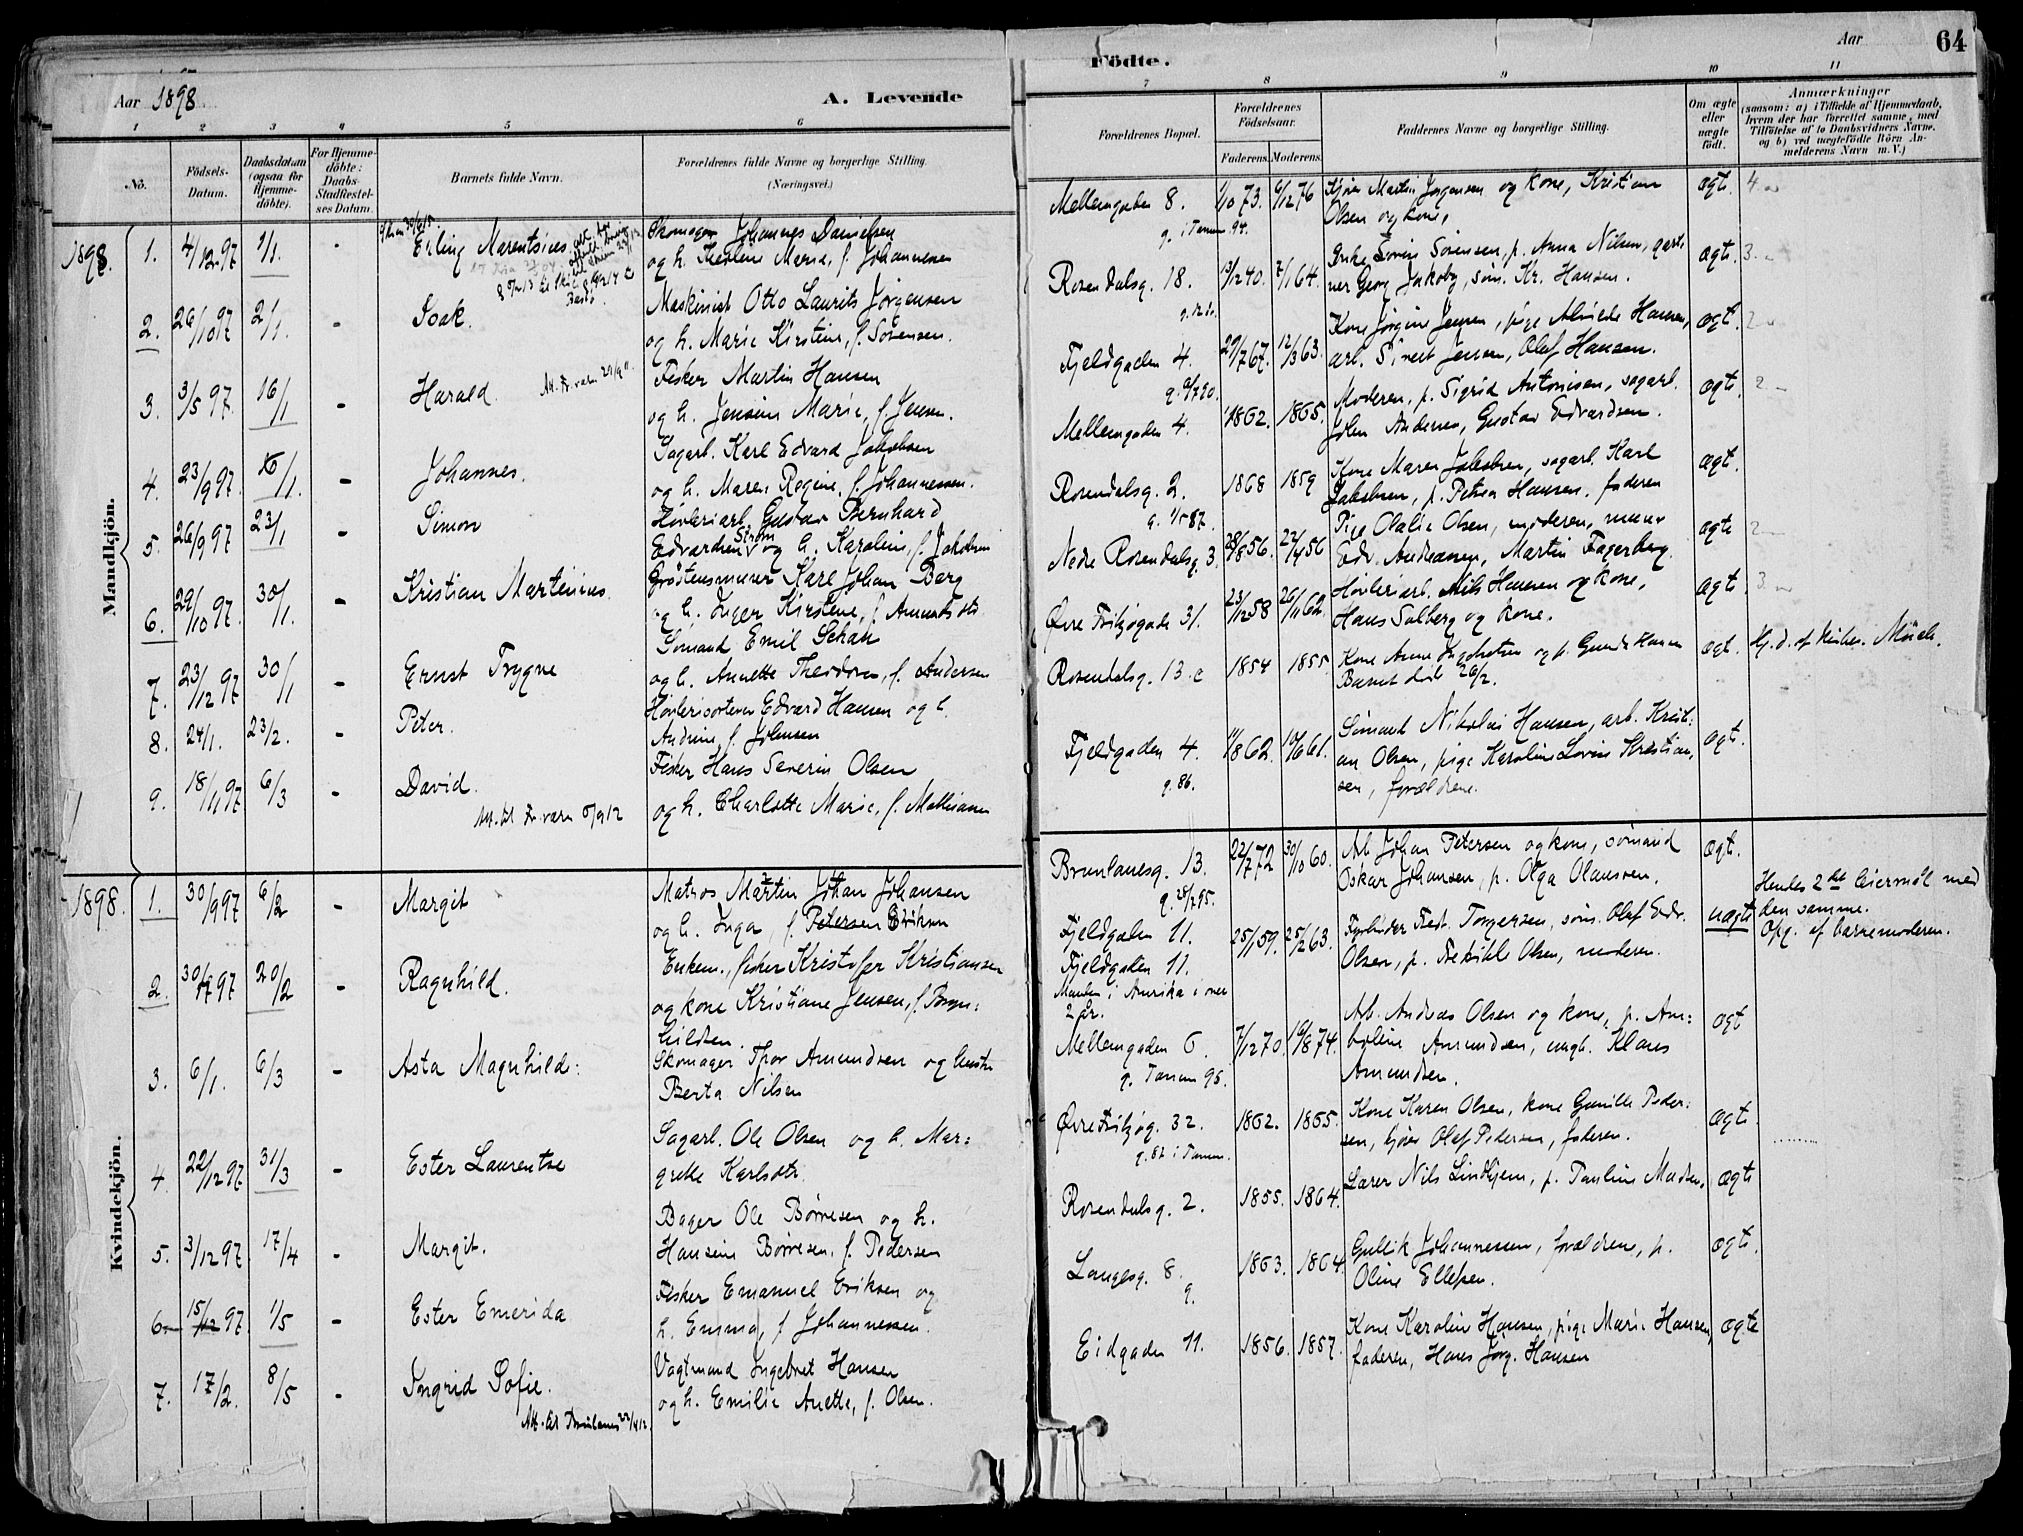 Aar 1898
A. Levende
1 2 3 4 5 6
No.
Födsels-
Datum.
Daabsdatum
(ogsaa for
Hjemme-
döbte).
For Hjemme-
döbte:
Daabs-
Stadfæstel-
ses Datum.
Barnets fulde Navn.
Forældrenes fulde Navne og borgerlige Stilling.
(Næringsvei.)
Mandkjön.
1898. 1. 4/12 97 1/1. - Erling Marentsius
Skomager Johannes Danielsen
og h. Maria, f. Johannessen
2. 26/10 97 2/1. - Isak.
Maskinist Otto Laurits Jørgensen
og h. Marie Kirstine, f. Sørensen.
3. 3/5 97. 16/1 - Harald.
Fisker Martin Hansen
og h. Jensine Marie, f. Jensen.
4. 23/9 97. 16/1. - Johannes.
Sagarb. Karl Edvard Jakobsen
og h. Maren Regine, f. Johannessen.
5. 26/9 97 23/1 - Simon
Høvleriarb. Gustav Bernhard
Edvardsen Strøm og h. Karoline, f. Jakobsen
6. 29/10 97. 30/1. - Kristian Martinius.
Karl Johan Berg
og h. Inger Kirstene, f. Amundsdtr.
7. 23/12 97 30/1 - Ernst Trygve
Sömand Emil Schau
og h. Annette Theodora, f. Andersen
8. 24/1. 23/2. - Peter.
Høvlerisorterer Edvard Hansen og h.
Andrine, f. Johnsen
9. 18/11 97 6/3 - David.
Fisker Hans Severin Olsen
og h. Charlotte Marie, f. Mathisen
Kvindekjön.
1898. 1. 30/9 97 6/2 - Margit
Matros Martin Johan Johansen
og h. Inga, f. Petersen Eriksen
2. 30/7 97 20/2 - Ragnhild.
Enkem., fisker Kristofer Kristiansen
og kone Kristiane Jensen, f. Bryn-
hildsen.
3. 6/1. 6/3 - Asta Magnhild:
Skomager Thor Amundsen og hustr
Berta Nilsen
4. 22/12 97 31/3 - Ester Laurentse
Sagarb. Ole Olsen og h. Mar=
grethe Karlsdtr.
5. 3/12 97 17/4 - Margit.
Bager Ole Børresen og h.
Hansine Børresen, f. Pedersen
6. 15/12 97. 1/5 - Ester Emerida
Fisker Emanuel Eriksen og
h. Emma, f. Johannessen.
7. 17/2. 8/5 - Ingrid Sofie.
Vagtmand Ingebret Hansen
og h. Emilie Anette, f. Olsen.
Födte.
Aar 64
7 8 9 10 11
Forældrenes Bopæl.
Forældrenes
Födselsaar.
Faderens. Moderens.
Faddernes Navne og borgerlige Stilling.
Om ægte
eller
uægte
födt.
Anmærkninger
(saasom: a) i Tilfælde af Hjemmedaab,
hvem der har forrettet samme, med
Tilföielse af to Daabsvidners Navne,
og b) ved uægtefödte Börn An-
melderens Navn m. V.)
Mellemgaden 8. 1/10 73. 6/12 76
Kjører Martin Jørgensen og kone, Kristian
Olsen og kone,
ægt.
g. i Tanum 94.
Rosendalsg. 18. 13/12 40. 7/1 64.
Enke Lovise Sørensen, p. Anna Nilsen, gart
ner Georg Jakoby, søm. Kr. Hansen.
ægt.
Fjeldgaden 4. 29/7 67. 12/3 63.
Kone Jørgine Jensen, pige Alvilde Hansen,
arb. Sivert Jensen, Olaf Hansen.
ægt.
Mellemgaden 4. 1862. 1865.
Moderen, p. Sigrid Antonisen, sagarb.
John Andersen, Gustav Edvardsen.
ægt.
Rosendalsg. 2. 1868 1859
Kone Maren Jakobsen, sagarb. Karl
Jakobsen, p. Petrea Hansen, faderen
ægt.
Nedre Rosendalsg. 3. 28/8 56. 22/4 56
Pige Olalie Olsen, moderen, murer
Edv. Andreasen, Martin Fagerberg.
ægte
Øvre Fritzøgade 31. 23/12 58 26/11 62.
Høvleriarb. Nils Hansen og kone,
Hans Solberg og kone.
ægt.
Rosendalsg. 13.c 1854 1855.
Kone Anne Ingebretsen og p. Hansen
Barnet död 26/2.
ægt.
Fjeldgaden 4. 11/8 62. 10/6 61.
Sömand Nikolai Hansen, arb. Krist:
an Olsen, pige Karoline Lovise Kristian,
sen, forældrene.
ægt.
g. 86.
Brunlanesg. 13. 22/7 72 30/10 60.
Arb. Johan Petersen og kone, sömand
Oskar Johansen, p. Olga Olaussen.
ægt.
Fjeldgaden 11. 25/1 59. 25/2 63.
Fyrbøder Fredr. Torgersen, söm. Olaf Edv.
Olsen, p. Olsen, moderen.
uægte
Hendes 2det leiermål med
den samme.
Opg. af barnemoderen.
Fjeldgaden 11.
Manden i Amerika i over
2 år.
Mellemgaden 6. 7/12 70. 16/8 74.
Arb. Andreas Olsen og kone, p. Am=
boline Amundsen, ungk. Klaus
Amundsen.
ægt
g. Tanum 95.
Øvre Fritzøg. 32. 1862. 1865.
Kone Karen Olsen, kone Gunille Peder:
sen, kjører Olaf Pedersen, faderen.
ægt.
g. 82 i Tanum.
Rosendalsg. 2. 1855. 1864.
Lærer Nils Lindhjem, p. Pauline Madsen.
ægte
Langesg. 8. 1863. 1864.
Gullik Johannessen, forældrene, p.
Oline Ellefsen.
ægte.
g.
Eidgaden 11. 1856. 1857.
Kone Karoline Hansen, pige Marie Hansen,
faderen, Hans Jørg. Hansen
ægte